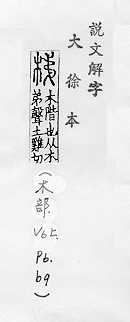 說文解字
大徐本
梯 木階也从木
弟聲土雞切
(木部.
Vol.
P6.
b9)